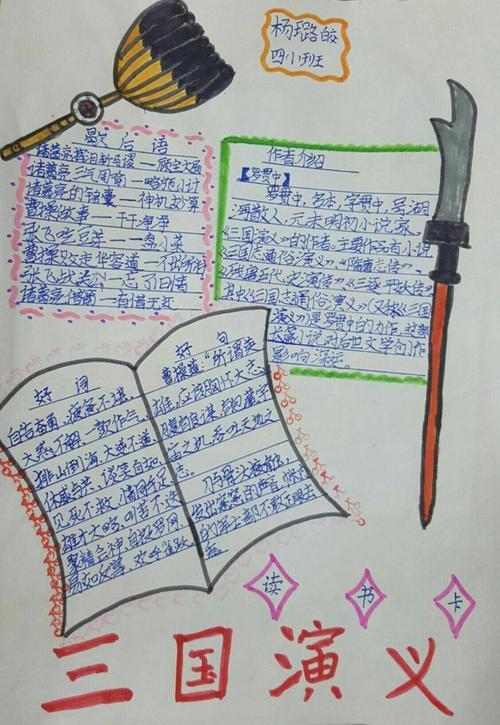 杨璐皎
四小班
歇后语
诸葛亮挥泪斩马谡——顾全大局
诸葛亮三气周瑜——略施小计
诸葛亮的锦囊——神机妙算
曹操做事——干干净净
张飞吃豆芽——一盘小菜
曹操败走华容道——不出所料
张飞战关公——忘了旧情
诸葛亮借箭——有借无还
作者介绍
【罗贯中】
罗贯中,名本,字贯中,号湖
海散人,元末明初小说家,
《三国演义》的作者,主要作品有小说
《三国志通俗演义》《隋唐志传》、
《残唐五代史演义传》《三遂平妖传》
其中《三国志通俗演义》(又称《三国
演义》)是罗贯中的力作,这部
长篇小说对后世文学创作
影响深远。
好词
自告奋勇、疲惫不堪、
大惑不解、一鼓作气、
排山倒海、大逆不道、
休戚与共、谈笑自如、
见死不救、情同手足、
雄才大略、
聚精会神、自投罗网、
易如反掌、
好句
曹操道:“所谓英
雄,应该胸怀大志,
腹有良谋,有包藏宇
宙之机,吞吐天地之
志。
读书卡
三国演义